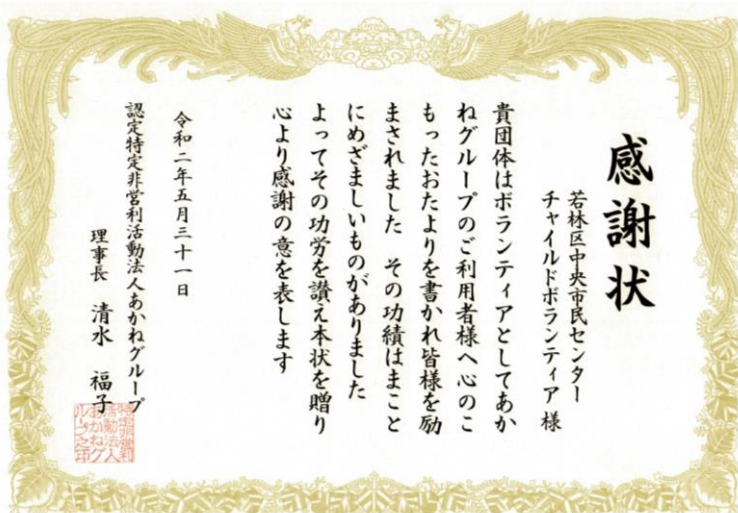 感謝状
若林区中央市民センター
チャイルドボランティア 様
貴団体はボランティアとしてあか
ねグループのご利用者様へ心のこ
もったおたよりを書かれ皆様を励
まされました その功績はまこと
にめざましいものがありました
よってその功労を讃え本状を贈り
心より感謝の意を表します
令和二年五月三十一日
認定特定非営利活動法人あかねグループ
理事長 清水 福子
特定非営利
活動法人
あかねグ
ループ之印